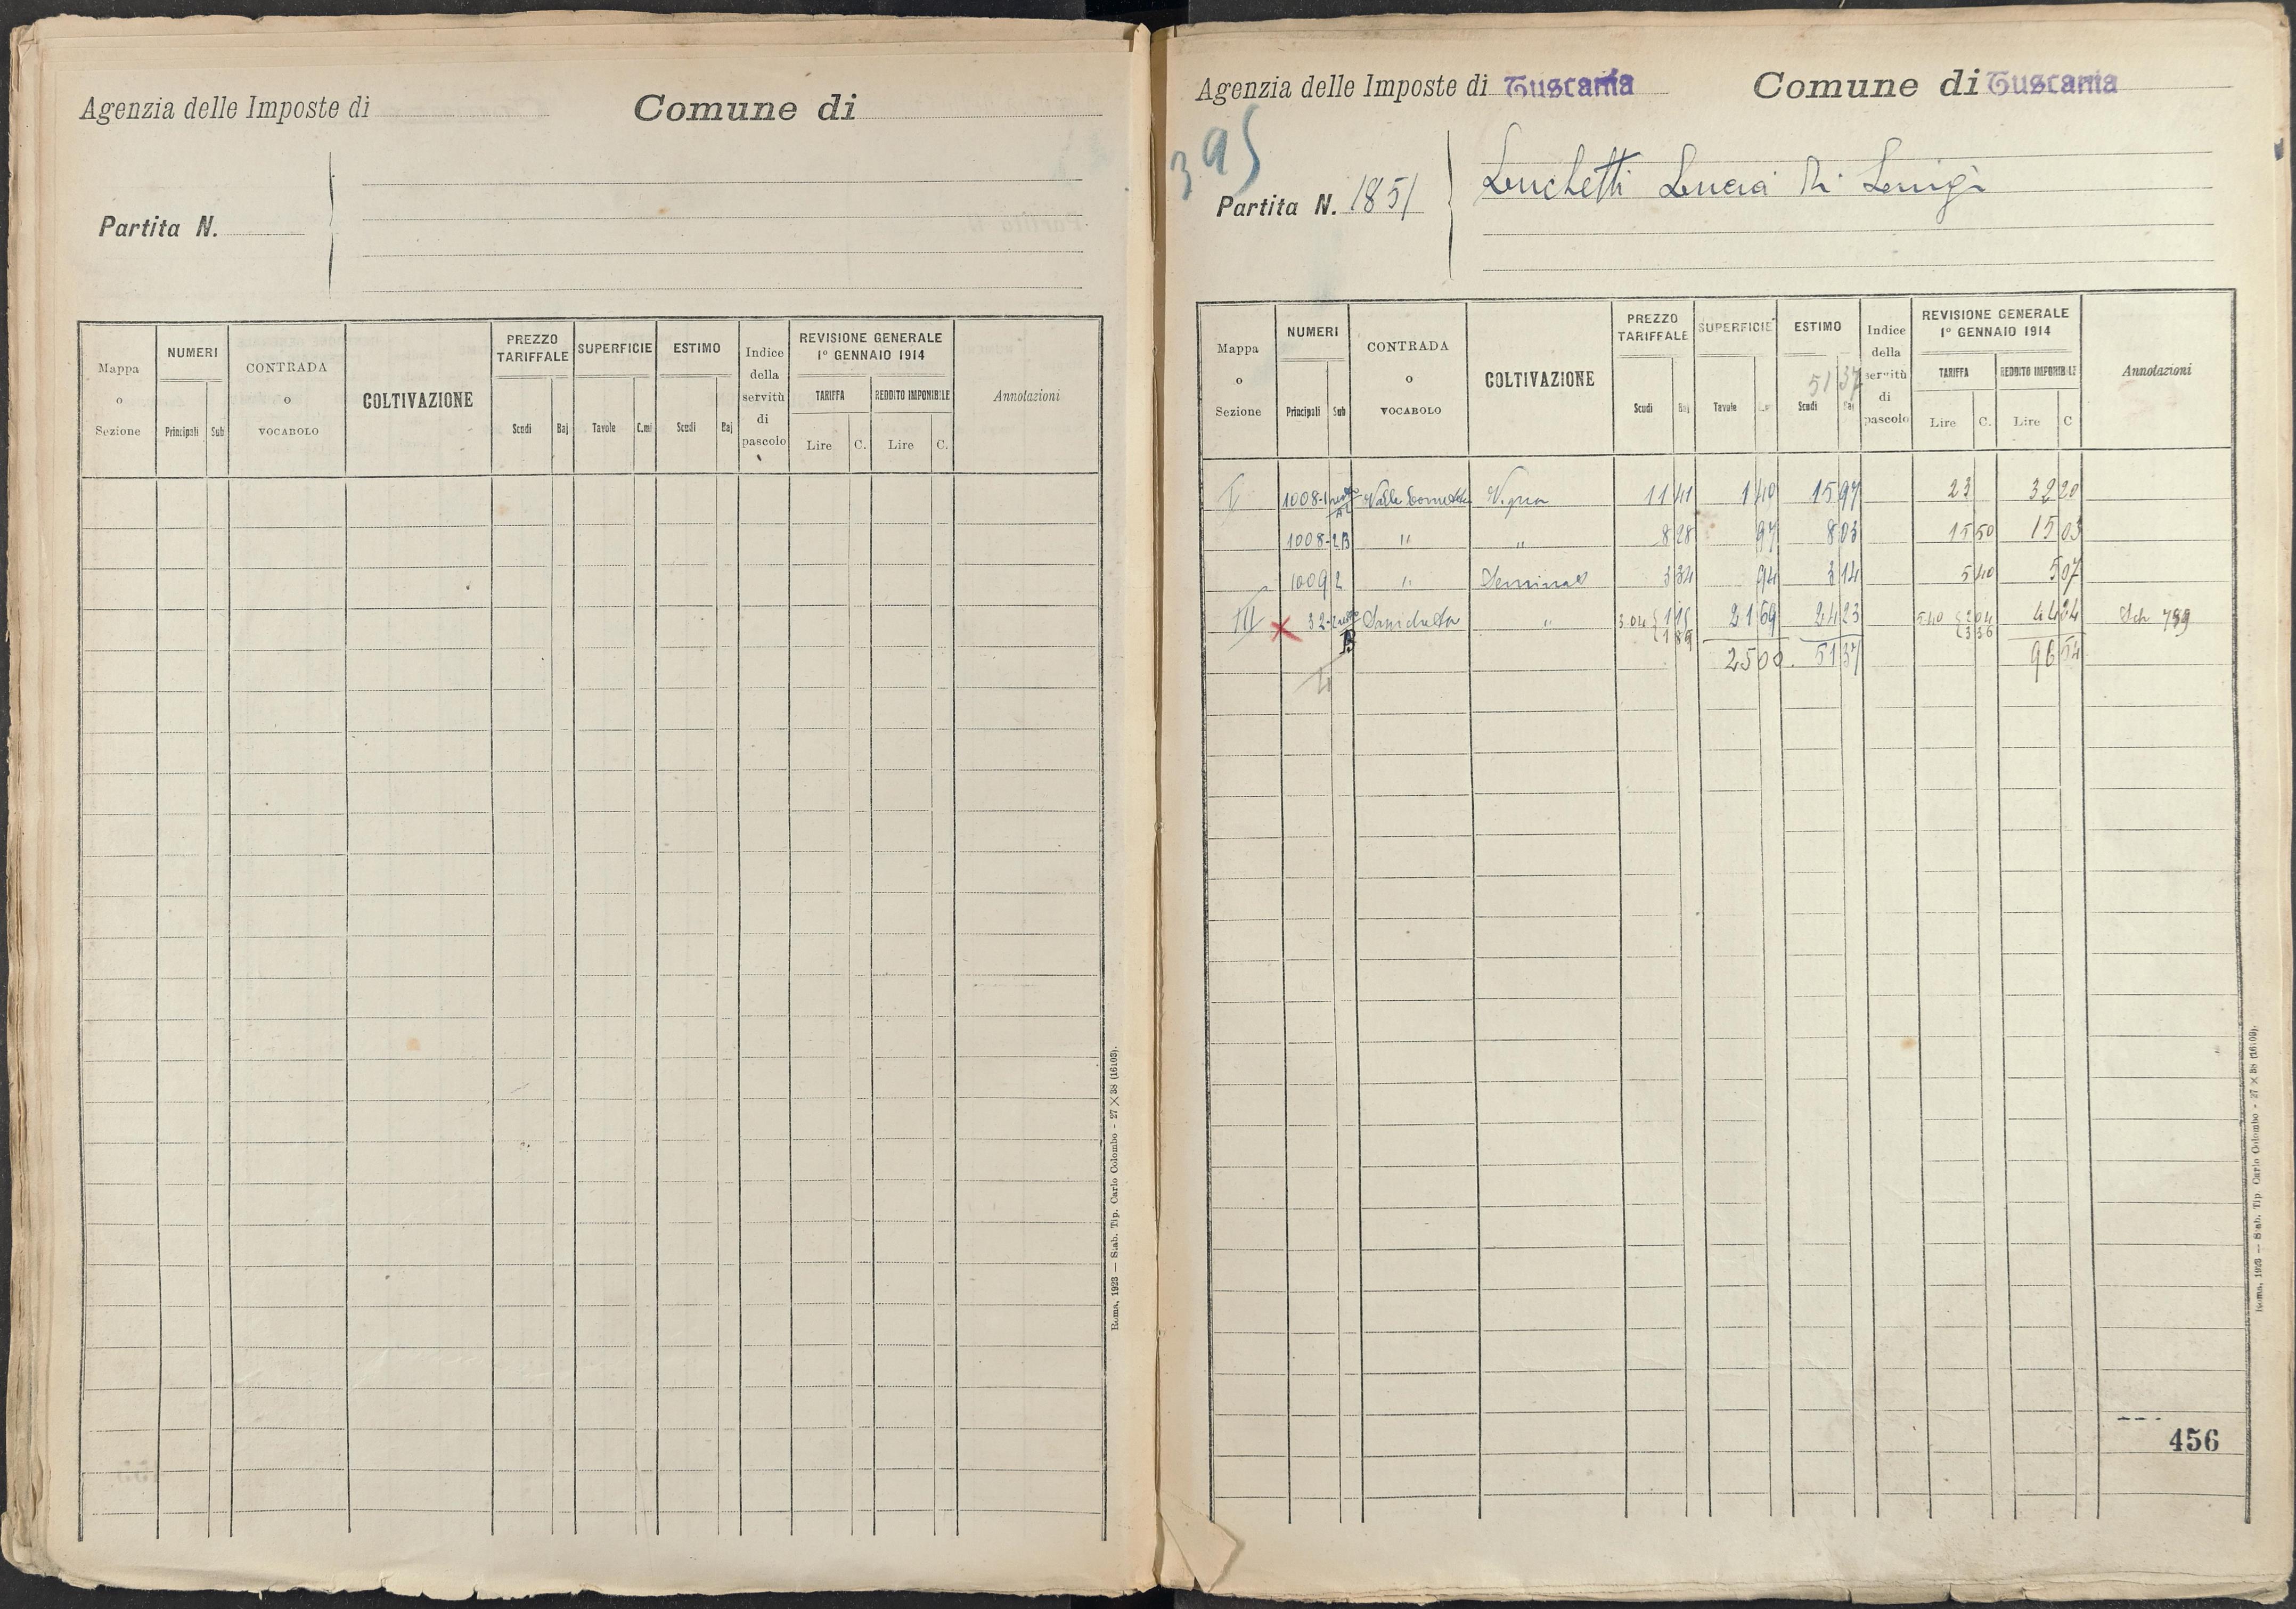 Agenzia delle Imposte di
Comune di
Partita N.
Mappa o Sezione
NUMERI
Principali
Sub
CONTRADA o VOCABOLO
COLTIVAZIONE
PREZZO TARIFFALE
Scudi
Baj
SUPERFICIE
Tavole
C.mi
ESTIMO
Scudi
Baj
Indice della servitù di pascolo
REVISIONE GENERALE
1º GENNAIO 1914
TARIFFA
REDDITO IMPONIBILE
Lire
C.
Lire
C.
Annotazioni
Roma, 1923 — Stab. Tip. Carlo Colombo - 27 × 38 (16103).
Agenzia delle Imposte di Tuscania
Comune di Tuscania
395
Partita N. 1851
Luchetti Lucia di Luigi
Mappa o Sezione
NUMERI
Principali
Sub
CONTRADA o VOCABOLO
COLTIVAZIONE
PREZZO TARIFFALE
Scudi
Baj
SUPERFICIE
Tavole
C.mi
ESTIMO
51 37
Scudi
Baj
Indice della servitù di pascolo
REVISIONE GENERALE
1º GENNAIO 1914
TARIFFA
REDDITO IMPONIBILE
Lire
C.
Lire
C
Annotazioni
I 1008-1 Valle Vigna 11 41 1 40 15 97 23 32 20
1008-2B " " 8 28 97 8 03 15 50 15 03
1009 2 " Seminat 3 34 94 3 14 5 40 5 07
III 32- B " 3 04 1 15 1 89 21 69 24 23 5 40 2 04 3 36 44 24 Sch 799
25 00 51 37 96 54
456
Roma, 1923 — Stab. Tip. Carlo Colombo - 27 × 38 (16103).